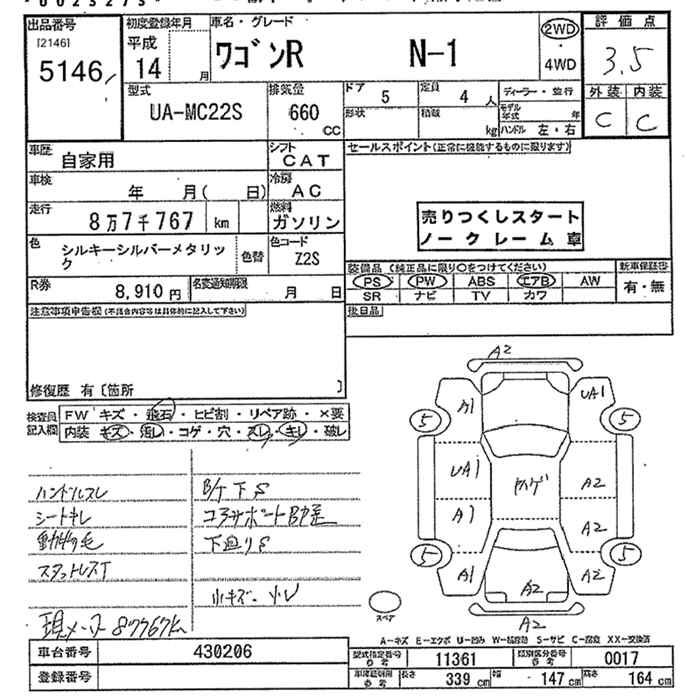 出品番号
[2146]
5146
初度登録年月
平成
14 月
車名・グレード
ワゴンR N-1
2WD
4WD
評価点
3.5
外装 内装
C C
型式
UA-MC22S
排気量
660
CC
ドア 5
定員 4 人
形状
積載 kg
ディーラー・並行
モデル年式 年
ハンドル 左・右
車歴 自家用
シフト CAT
車検 年 月( 日)
冷房 AC
走行 8万7千767 km
燃料 ガソリン
色 シルキーシルバーメタリック
色替
色コード Z2S
R券 8,910円
名変通知期限 月 日
セールスポイント(正常に機能するものに限ります)
売りつくしスタート
ノークレーム車
装備品 (純正品に限り○をつけてください)
新車保証書
PS PW ABS エアB AW
SR ナビ TV カワ
有・無
後日品
注意事項申告欄(不具合内容等は具体的に記入して下さい)
修復歴 有〔箇所 〕
検査員記入欄
FW キズ・飛石・ヒビ割・リペア跡・×要
内装 キズ・汚レ・コゲ・穴・スレ・キレ・破レ
ハンドルスレ
シートキレ
動物の毛
スタットレスT
現メーター 87767k
B/F下S
コアサポートB歪
下廻りS
小キズ・凹
A2
A1
UA1
5
5
UA1
ハゲ
A2
A1
A2
5
5
A1
A2
A2
A2
スペア
A-キズ E-エクボ U-凹み W-補修跡 S-サビ C-腐食 XX-交換済
車台番号 430206
型式指定番号 参考 11361
類別区分番号 参考 0017
登録番号
車庫証明用 参考
長さ 339 cm
幅 147 cm
高さ 164 cm